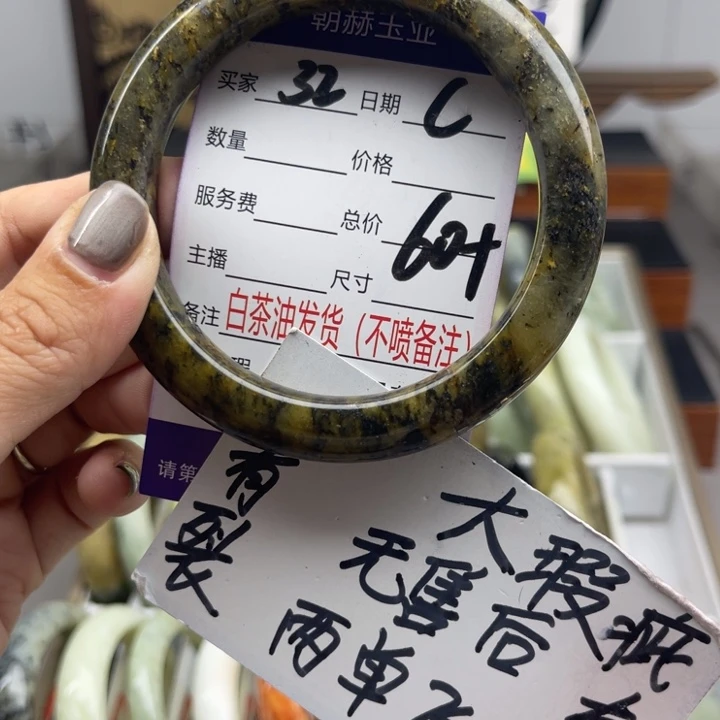 朝赫玉业
买家 32 日期 C
数量 价格
服务费 总价 60+
主播 尺寸
备注 白茶油发货（不喷备注）
瑕
请第
有裂
大瑕疵
无售后
两单